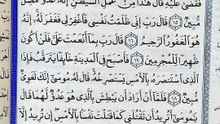 فَقَضَىٰ عَلَيْهِ قَالَ هَٰذَا مِنْ عَمَلِ ٱلشَّيْطَٰنِ إِنَّهُۥ عَدُوٌّ مُّضِلٌّ
مُّبِينٌ ١٥ قَالَ رَبِّ إِنِّى ظَلَمْتُ نَفْسِى فَٱغْفِرْ لِى فَغَفَرَ لَهُۥٓ إِنَّهُۥ
هُوَ ٱلْغَفُورُ ٱلرَّحِيمُ ١٦ قَالَ رَبِّ بِمَآ أَنْعَمْتَ عَلَىَّ فَلَنْ أَكُونَ
ظَهِيرًا لِّلْمُجْرِمِينَ ١٧ فَأَصْبَحَ فِى ٱلْمَدِينَةِ خَآئِفًا يَتَرَقَّبُ فَإِذَا
ٱلَّذِى ٱسْتَنصَرَهُۥ بِٱلْأَمْسِ يَسْتَصْرِخُهُۥ قَالَ لَهُۥ مُوسَىٰٓ إِنَّكَ لَغَوِىٌّ
مُّبِينٌ ١٨ فَلَمَّآ أَنْ أَرَادَ أَن يَبْطِشَ بِٱلَّذِى هُوَ عَدُوٌّ لَّهُمَا قَالَ
يَٰمُوسَىٰٓ أَتُرِيدُ أَن تَقْتُلَنِى كَمَا قَتَلْتَ نَفْسًۢا بِٱلْأَمْسِ إِن تُرِيدُ إِلَّآ